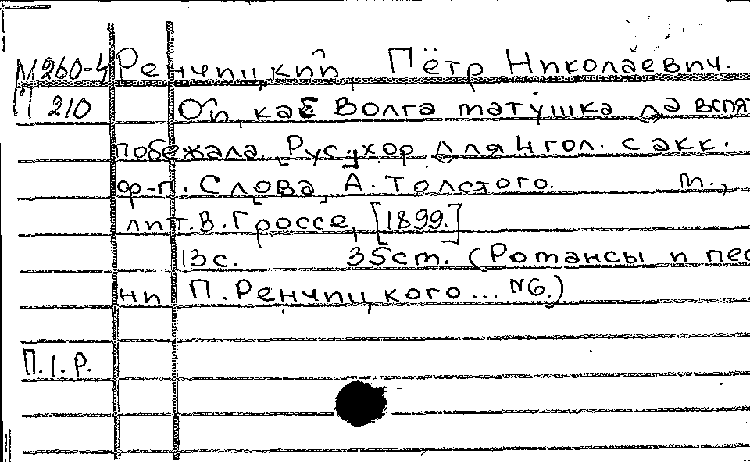 М260-4 Ренчицкий, Пётр Николаевич.
П 210 Ой, каб Волга матушка да вспять
побежала. [Рус.] хор для 4 гол. с акк.
ф-п. Слова А. Толстого. М.,
лит. В. Гроссе, [1899.]
13 с. 35 см. (Романсы и пес
ни П. Ренчицкого... №6.)
П.I.Р.